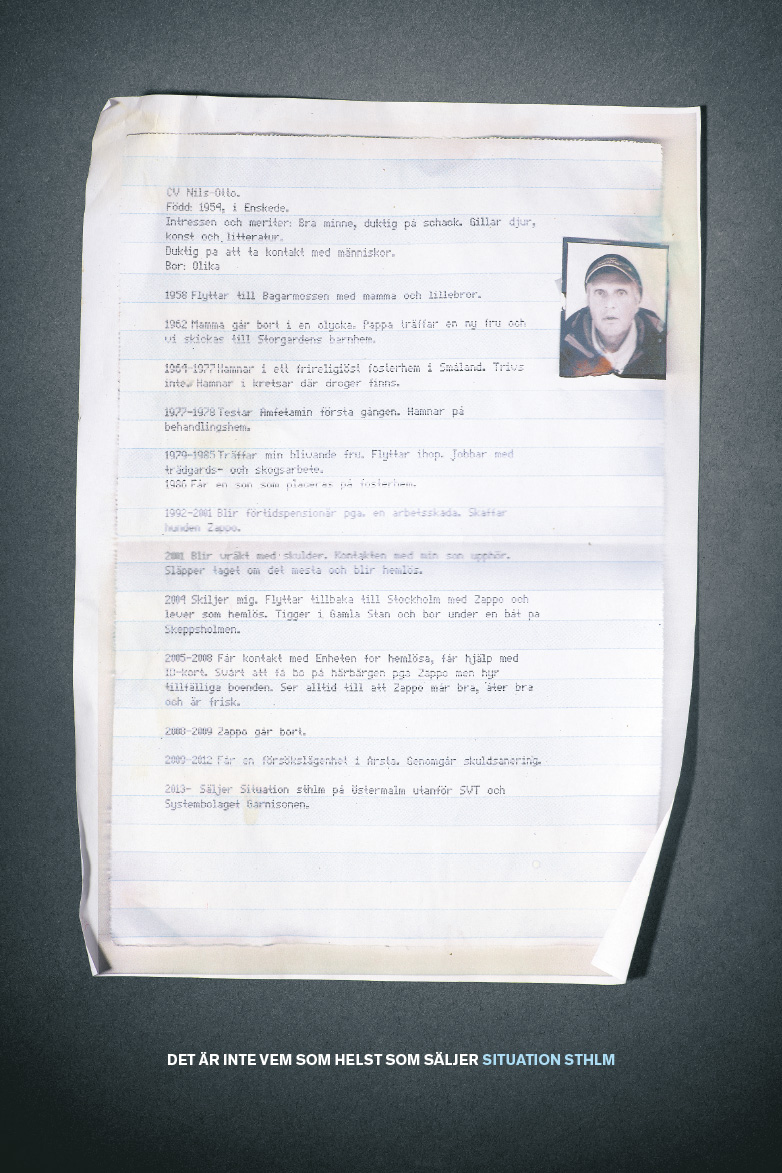 CV Nils-Otto.
Född: 1954, i Enskede.
Intressen och meriter: Bra minne, duktig på schack. Gillar djur,
konst och litteratur.
Duktig pa att ta kontakt med människor.
Bor: Olika
1958 Flyttar till Bagarmossen med mamma och lillebror.
1962 Mamma går bort i en olycka. Pappa träffar en ny fru och
vi skickas till Storgårdens barnhem.
1964-1977 Hamnar i ett frireligiöst fosterhem i Småland. Trivs
inte. Hamnar i kretsar där droger finns.
1977-1978 Testar Amfetamin första gången. Hamnar på
behandlingshem.
1979-1985 Träffar min blivande fru. Flyttar ihop. Jobbar med
trädgårds- och skogsarbete.
1986 Får en son som placeras på fosterhem.
1992-2001 Blir förtidspensionär pga. en arbetsskada. Skaffar
hunden Zappo.
2001 Blir vräkt med skulder. Kontakten med min son upphör.
Släpper taget om det mesta och blir hemlös.
2004 Skiljer mig. Flyttar tillbaka till Stockholm med Zappo och
lever som hemlös. Tigger i Gamla Stan och bor under en båt pa
Skeppsholmen.
2005-2008 Får kontakt med Enheten for hemlösa, får hjälp med
ID-kort. Svårt att få bo på härbärgen pga Zappo men hyr
tillfälliga boenden. Ser alltid till att Zappo mår bra, äter bra
och är frisk.
2008-2009 Zappo går bort.
2009-2012 Får en försökslägenhet i Årsta. Genomgår skuldsanering.
2013- Säljer Situation sthlm på Östermalm utanför SVT och
Systembolaget Garnisonen.
DET ÄR INTE VEM SOM HELST SOM SÄLJER SITUATION STHLM